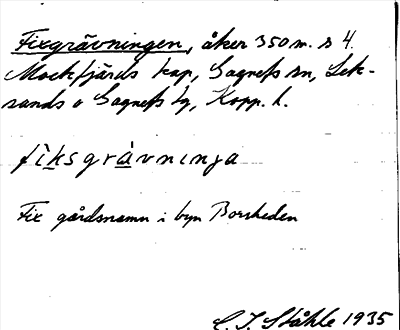 Fixgrävningen, åker 350 m. s 4.
Mockfjärds kap, Gagnefs sn, Lek-
sands o Gagnefs tg, Kopp. l.
fiksgrävninja
Fix gårdsnamn i byn Borsheden
C. I. Ståhle 1935